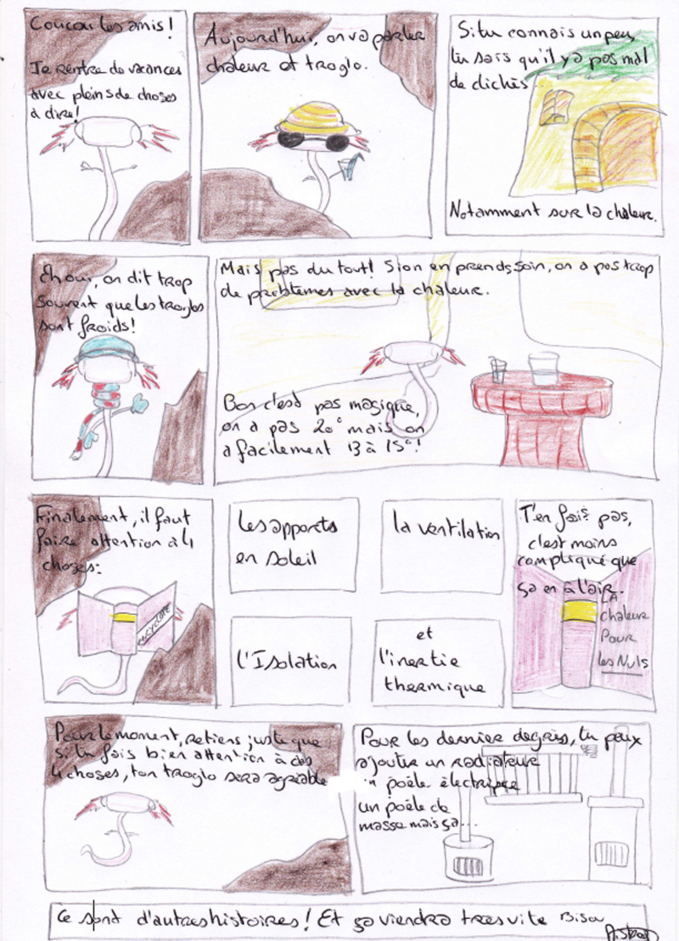 Coucou les amis!
Je rentre de vacances
avec pleins de choses
à dire!
Aujourd'hui, on va parler
chaleur et troglo.
Si tu connais un peu,
tu sais qu'il y a pas mal
de clichés
Notamment sur la chaleur.
Eh oui, on dit trop
souvent que les troglos
sont froids!
Mais pas du tout! Si on en prends soin, on a pas trop
de problèmes avec la chaleur.
Bon c'est pas magique,
on a pas 20° mais on
a facilement 13 à 15°!
Finalement, il faut
faire attention à 4
choses:
les apports
en soleil
la ventilation
l'Isolation
et
l'inertie
thermique
T'en fais pas,
c'est moins
compliqué que
ça en a l'air.
LA
chaleur
Pour
les Nuls
Pour le moment, retiens juste que
si tu fais bien attention à ces
4 choses, ton troglo sera agréable
Pour les dernier degrès, tu peux
ajouter un radiateur
un poêle électrique
un poêle de
masse mais ça...
Ce sont d'autres histoires! Et ça viendra très vite Bisou